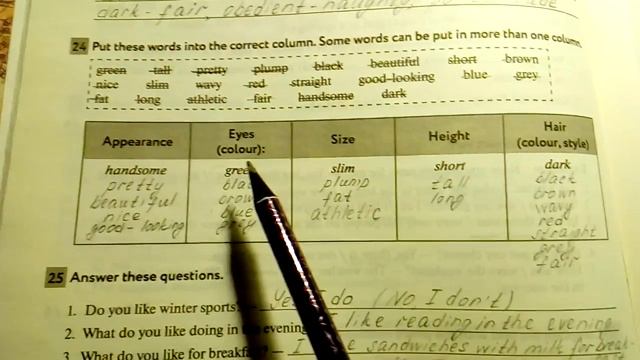 dark - fair, obedient - naughty,
24 Put these words into the correct column. Some words can be put in more than one column.
green tall pretty plump black beautiful short brown
nice slim wavy red straight good-looking blue grey
fat long athletic fair handsome dark
Appearance Eyes (colour): Size Height Hair (colour, style)
handsome green slim short dark
pretty black plump tall black
beautiful brown fat long brown
nice blue athletic wavy
good-looking grey red
straight
grey
fair
25 Answer these questions.
1. Do you like winter sports? - Yes I do (No I don't)
2. What do you like doing in the evening I like reading in the evening
3. What do you like for breakfast - I like sandwiches with milk for break